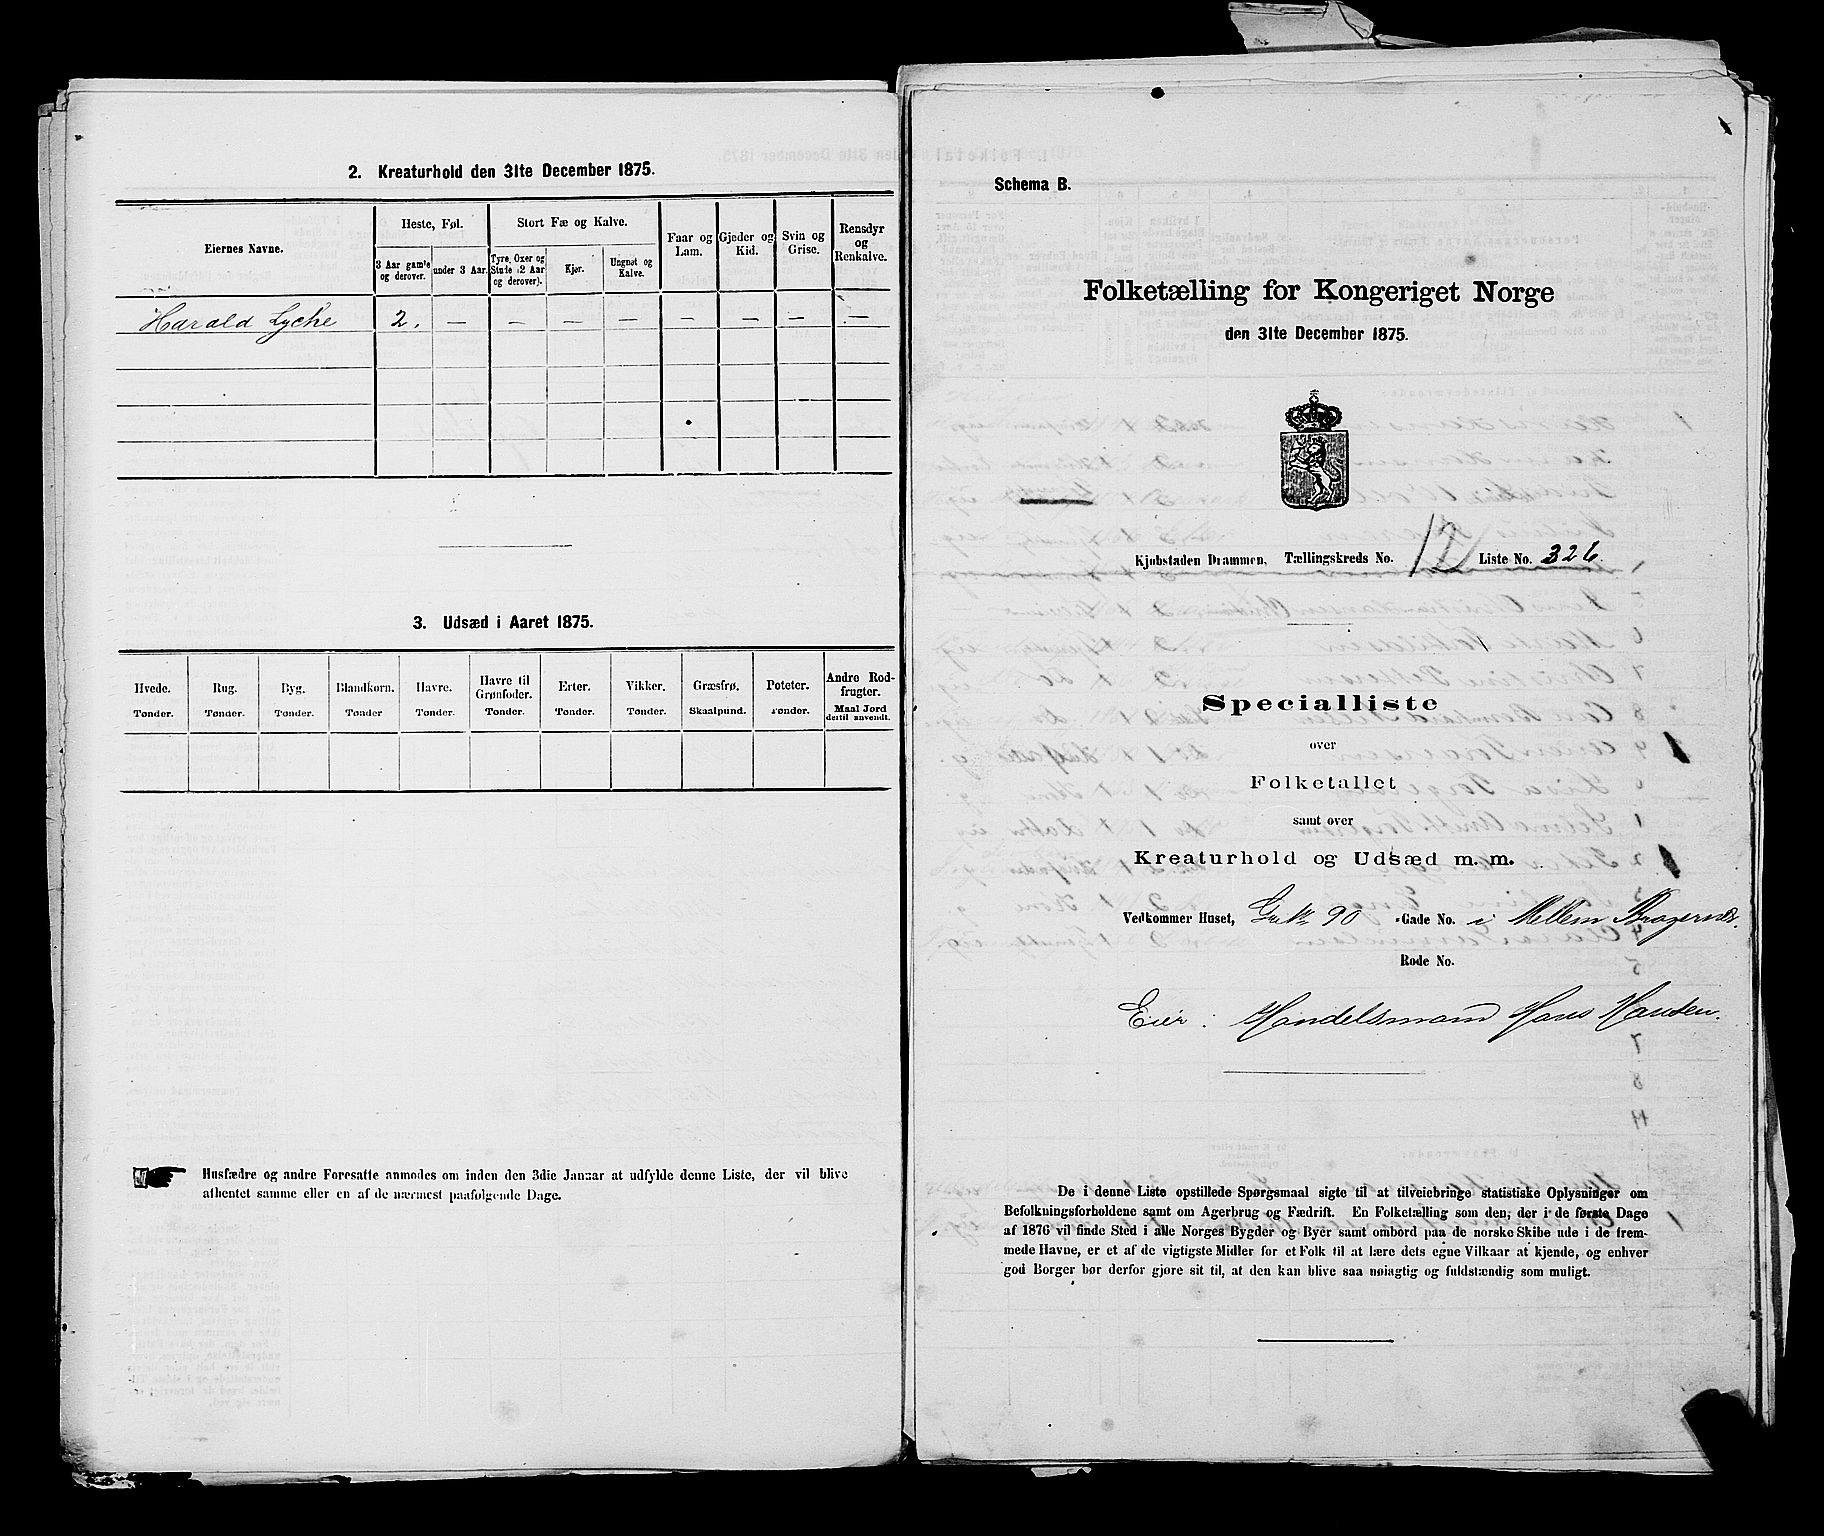 2. Kreaturhold den 31te December 1875.
Eiernes Navne.
Heste, Føl.
3 Aar gamle og derover.
under 3 Aar.
Stort Fæ og Kalve.
Tyre, Oxer og Stude (2 Aar og derover).
Kjør.
Ungnøt og Kalve.
Faar og Lam.
Gjeder og Kid.
Svin og Grise.
Rensdyr og Renkalve.
Harald Lyche 2. — — — — — — — —
3. Udsæd i Aaret 1875.
Hvede. Tønder.
Rug. Tønder.
Byg. Tønder.
Blandkorn. Tønder
Havre. Tønder.
Havre til Grønfoder. Tønder.
Erter. Tønder.
Vikker. Tønder.
Græsfrø. Skaalpund.
Poteter. Tønder.
Andre Rodfrugter. Maal Jord dertil anvendt.
Husfædre og andre Foresatte anmodes om inden den 3die Januar at udfylde denne Liste, der vil blive
afhentet samme eller en af de nærmest paafølgende Dage.
Schema B.
Folketælling for Kongeriget Norge
den 31te December 1875.
Kjøbstaden Drammen, Tællingskreds No. 12 Liste No. 326
Specialliste
over
Folketallet
samt over
Kreaturhold og Udsæd m. m.
Vedkommer Huset, Gr No 90 -Gade No. i Mellem Bragernes.
Rode No.
Eier: Handelsmand Hans Hansen.
De i denne Liste opstillede Spørgsmaal sigte til at tilveiebringe statistiske Oplysninger om
Befolkningsforholdene samt om Agerbrug og Fædrift. En Folketælling som den, der i de første Dage
af 1876 vil finde Sted i alle Norges Bygder og Byer samt ombord paa de norske Skibe ude i de frem-
mede Havne, er et af de vigtigste Midler for et Folk til at lære dets egne Vilkaar at kjende, og enhver
god Borger bør derfor gjøre sit til, at den kan blive saa nøiagtig og fuldstændig som muligt.